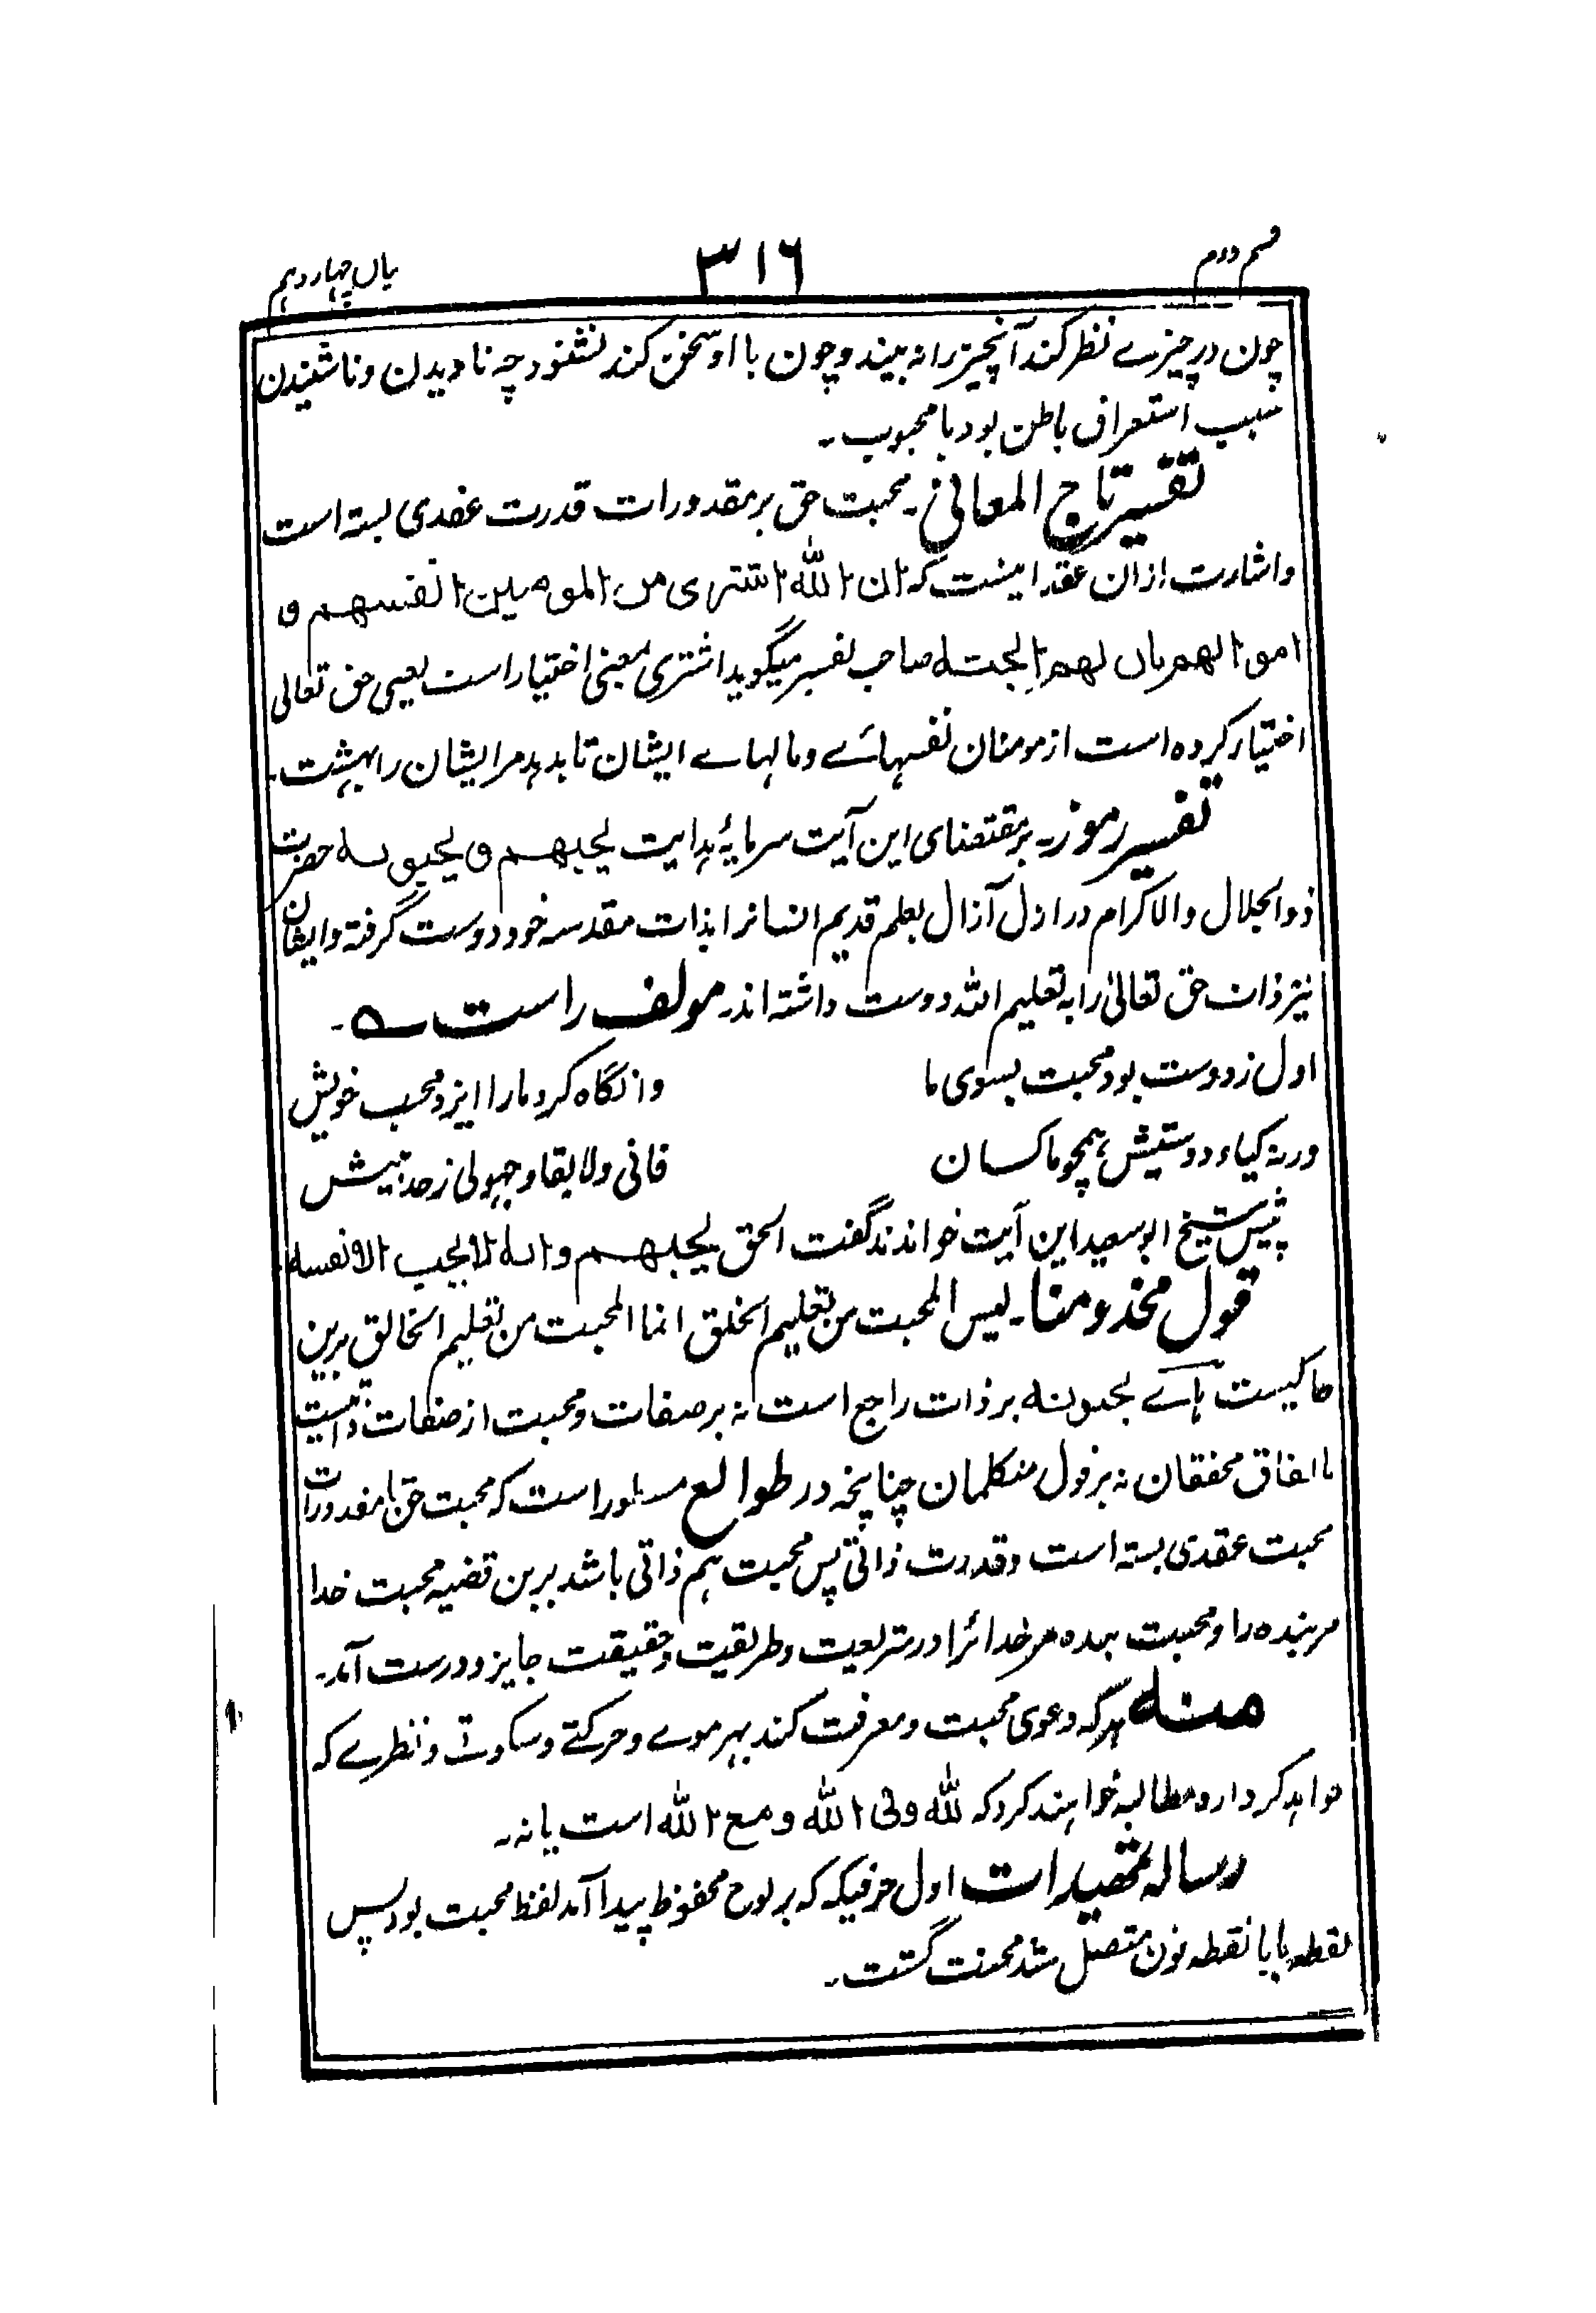 قسم دوم ۳۱۶ بیان چہاردہم
چون در چیزے نظر کند آنچیز را نہ بیند و چون با او سخن کند نشنود چہ نادیدن و ناشنیدن
سبب استغراق باطن بود با محبوب۔
تفسیر تاج المعانی۔ محبت حق بر مقدورات قدرت عقدی بستہ است
و اشارت ازان عقد اینست کہ ان اللہ اشتری من المومنین انفسہم و
اموالہم بان لہم الجنہ صاحب تفسیر میگوید اشتری بمعنی اختیار است یعنی حق تعالی
اختیار کردہ است از مومنان نفسہائے و مالہاے ایشان تا بدہد مر ایشان را بہشت۔
تفسیر رموز۔ بر مقتضای این آیت سرمایۂ ہدایت یحبہم و یحبونہ حضرت
ذو الجلال والاکرام در ازل آزال بعلم قدیم انسانرا بذات مقدسہ خود دوست گرفتہ و ایشان
نیز ذات حق تعالیٰ را بہ تعلیم اللہ دوست داشتہ اند۔ مولف راست ؎۔
اول ز دوست بود محبت بسوی ما وانگاہ کرد مارا ایزد محب خویش
ورنہ کیاء دوستیش ہمچو ما کسان فانی ولا بقا و جہولی ز حد بیش
پیش شیخ ابو سعید این آیت خواندند گفت الحق یحبہم و انہ لا یحب الا نفسہ
قول مخدومنا۔ لیس المحبت من تعلیم الخلق انما المحبت من تعلیم الخالق برین
حاکیست ہاے یحبونہ بر ذات راجع است نہ بر صفات و محبت از صفات ذاتیست
باتفاق محققان نہ بر قول متکلمان چنانچہ در طوالع مسطور است کہ محبت حق با مقدورات
محبت عقدی بستہ است و قدرت ذاتی پس محبت ہم ذاتی باشد برین قضیہ محبت خدا
مر بندہ را و محبت بندہ مر خدائرا در شریعت و طریقت و حقیقت جایز و درست آمد۔
منہ ہر کہ دعوی محبت و معرفت کند بہر موے و حرکتے و سکوتے و نظرے کہ
خواہد کرد ارو مطالبہ خواہند کرد کہ للہ و فی اللہ و مع اللہ است یا نہ۔
رسالہ اول حرفیکہ کہ بر لوح محفوظ پیدا آمد لفظ محبت بود پس
نقطہ با با نقطہ نون متصل شد محنت گشت۔